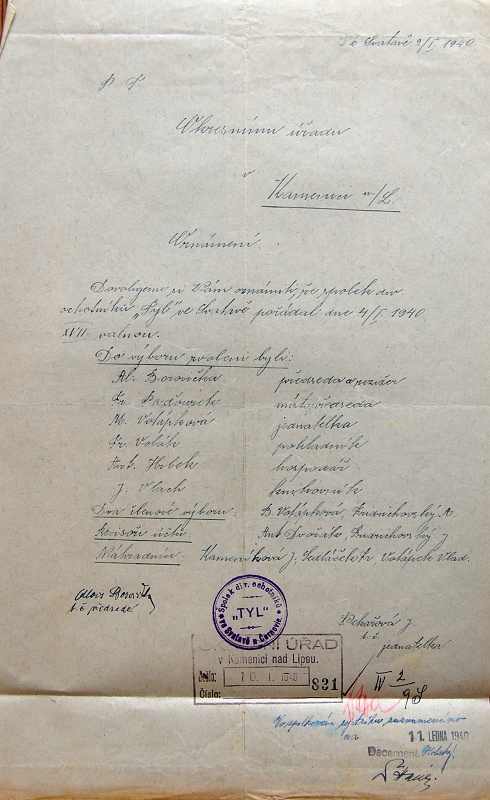 Ve Svatavě 9/I. 1940
P. T.
Okresnímu úřadu
v
Kamenici n/L.
Oznámení.
Dovolujeme si Vám oznámiti, že spolek div.
ochotníků „Tyl" ve Svatavě pořádal dne 4/I. 1940
XVII. valnou.
Do výboru zvoleni byli:
Al. Borovička předseda a režisér
Fr. místopředseda
M. Votápková jednatelka
Fr. Volák pokladník
Ant. Hrbek hospodář
J. Vlach knihovník
Dva členové výboru: B. Votápková,
Revisoři účtů: Ant. Dvořák,
Náhradníci: Kameníková J. Votápek Vlad.
Alois Borovička
t. č. předseda
Spolek div. ochotníků
„TYL"
ve Svatavě u Černovic.
t. č.
jednatelka
OKRESNÍ ÚŘAD
v Kamenici nad Lipou.
Došlo: 10. I. 1940
Číslo: 831
IV 2
Ve spolkovém rejstříku zaznamenáno
11. LEDNA 1940
Decernent: